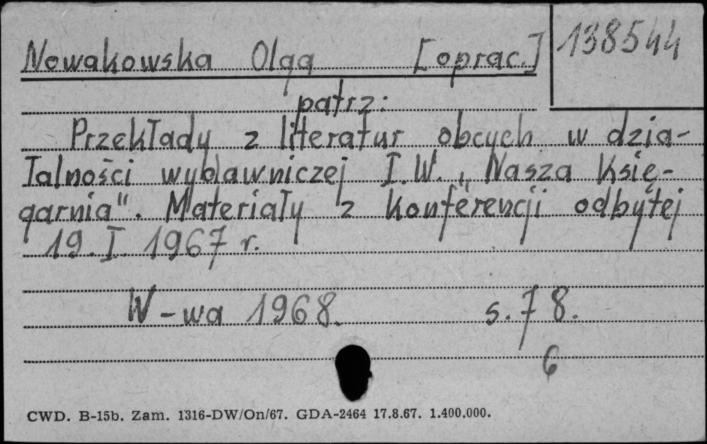 138544
Nowakowska Olga [oprac.]
patrz:
Przekłady z literatur obcych w dzia-
łalności wydawniczej I.W. „Nasza Księ-
garnia". Materiały z konferencji odbytej
19.I 1967 r.
W-wa 1968. s. 78.
6
CWD. B-15b. Zam. 1316-DW/On/67. GDA-2464 17.8.67. 1.400.000.